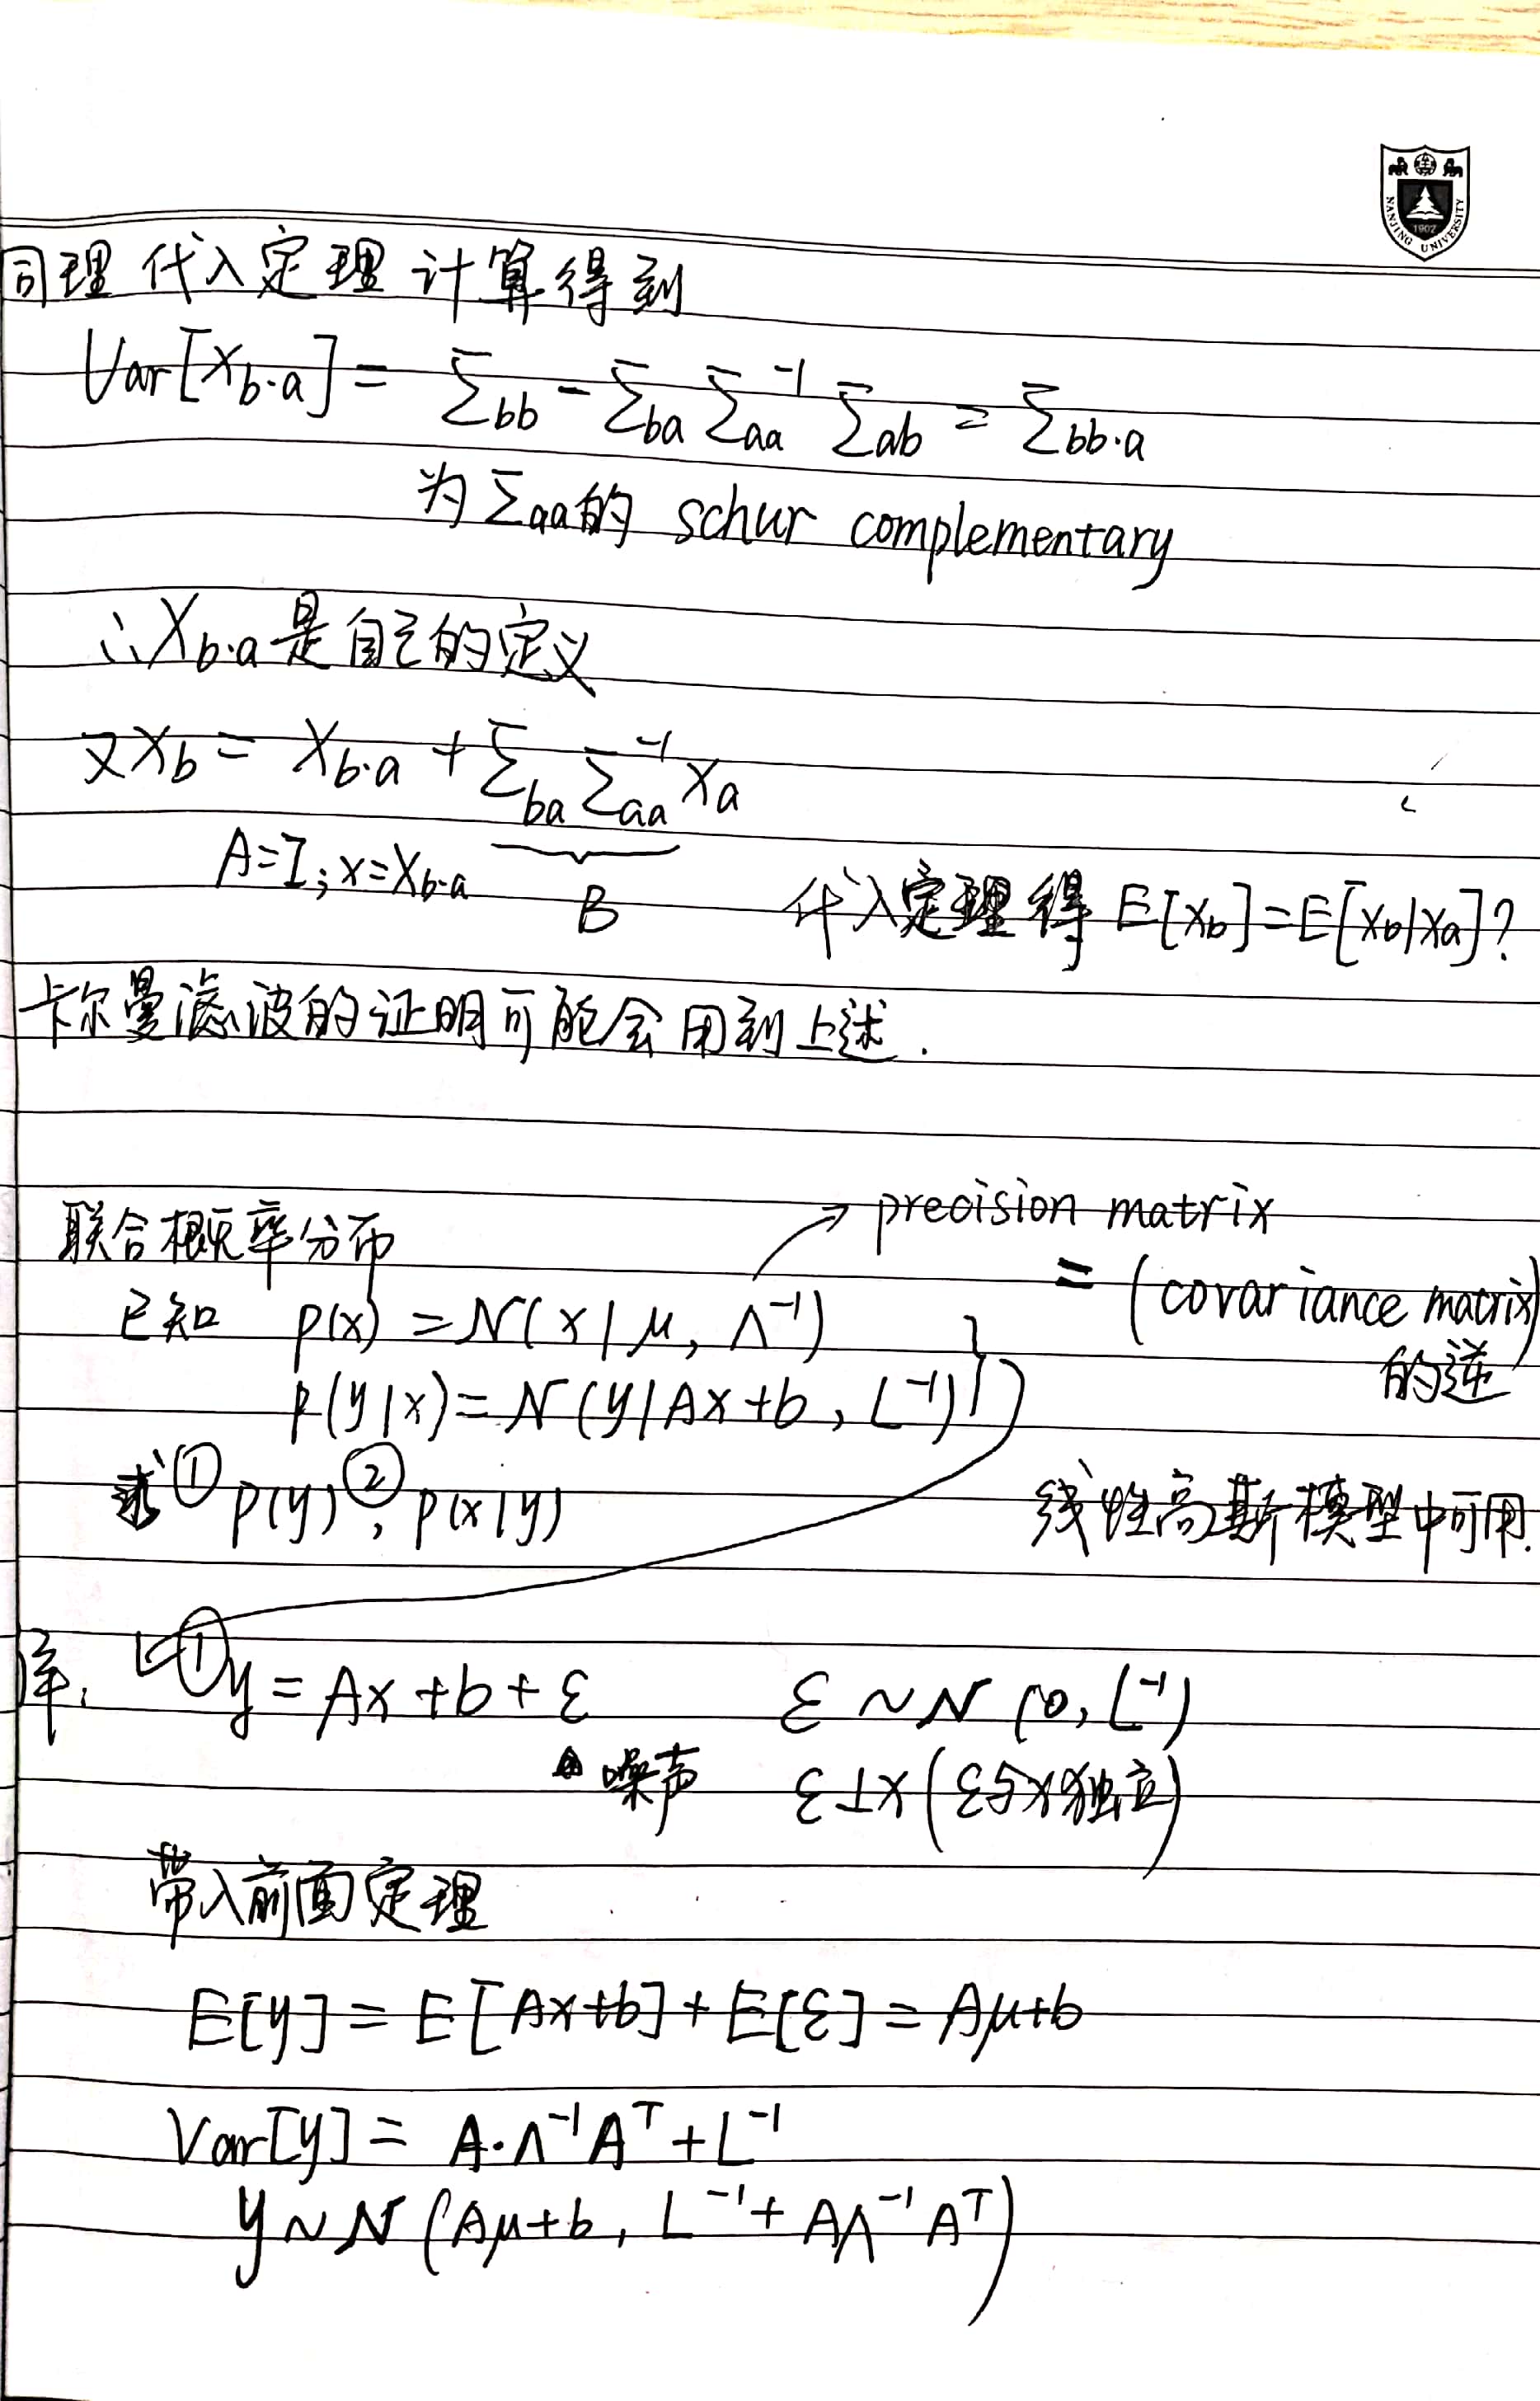 NANJING UNIVERSITY
1902
同理 代入定理 计算得到
Var[X_{b·a}] = Σ_{bb} - Σ_{ba} Σ_{aa}^{-1} Σ_{ab} = Σ_{bb·a}
为 Σ_{aa}的 schur complementary
∴X_{b·a} 是自己的定义
又 X_b = X_{b·a} + Σ_{ba} Σ_{aa}^{-1} X_a
A=I; x=X_{b·a} B 代入定理得 E[X_b]=E[X_b|X_a]?
卡尔曼滤波的证明可能会用到上述.
联合概率分布 → precision matrix
= (covariance matrix)
已知 p(x) = N(x|μ, Λ^{-1})
的逆
p(y|x) = N(y|Ax+b, L^{-1})
求 ① p(y), ② p(x|y) 线性高斯模型中可用.
① y = Ax+b+ε ε ~ N(0, L^{-1})
噪声 ε⊥x (ε与x独立)
带入前面定理
E[y] = E[Ax+b] + E[ε] = Aμ+b
Var[y] = A·Λ^{-1}A^T + L^{-1}
y ~ N(Aμ+b, L^{-1} + AΛ^{-1}A^T)